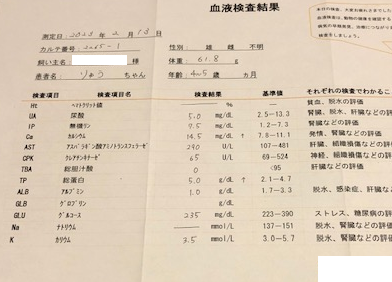 血液検査結果
測定日：2023 年 2 月 13 日
カルテ番号：2265-1
飼い主名： 様
患者名：りゅう ちゃん
性別： 雄 雌 不明
体重： 61.8 g
年齢：4~5 歳 ヵ月
検査項目 検査項目名 検査結果 基準値 それぞれの検査でわかるこ
Ht ヘマトクリット値 — % — 貧血、脱水の評価
UA 尿酸 5.0 mg/dL 2.5-13.3 腎臓などの評価
IP 無機リン 7.5 mg/dL 1.9-7.9 腎臓などの評価
Ca カルシウム 14.5 mg/dL ↑ 7.8-11.1 発情、腎臓などの評価
AST アスパラギン酸アミノトランスフェラーゼ 290 U/L 107-481 肝臓、組織損傷などの評
CPK クレアチンキナーゼ 65 U/L 69-524 神経、組織損傷などの評
TBA 総胆汁酸 0 <95 肝臓などの評価
TP 総蛋白 5.0 mg/dL ↑ 2.1-4.7
ALB アルブミン 1.0 mg/dL 1.7-3.3 脱水、感染症、肝臓など
GLB グロブリン g/dL
GLU グルコース 235 mg/dL 223-390 ストレス、糖尿病の評
Na ナトリウム — mmol/L 137-151 脱水、腎臓などの評価
K カリウム 3.5 mmol/L 3.0-5.7 脱水、腎臓などの評価